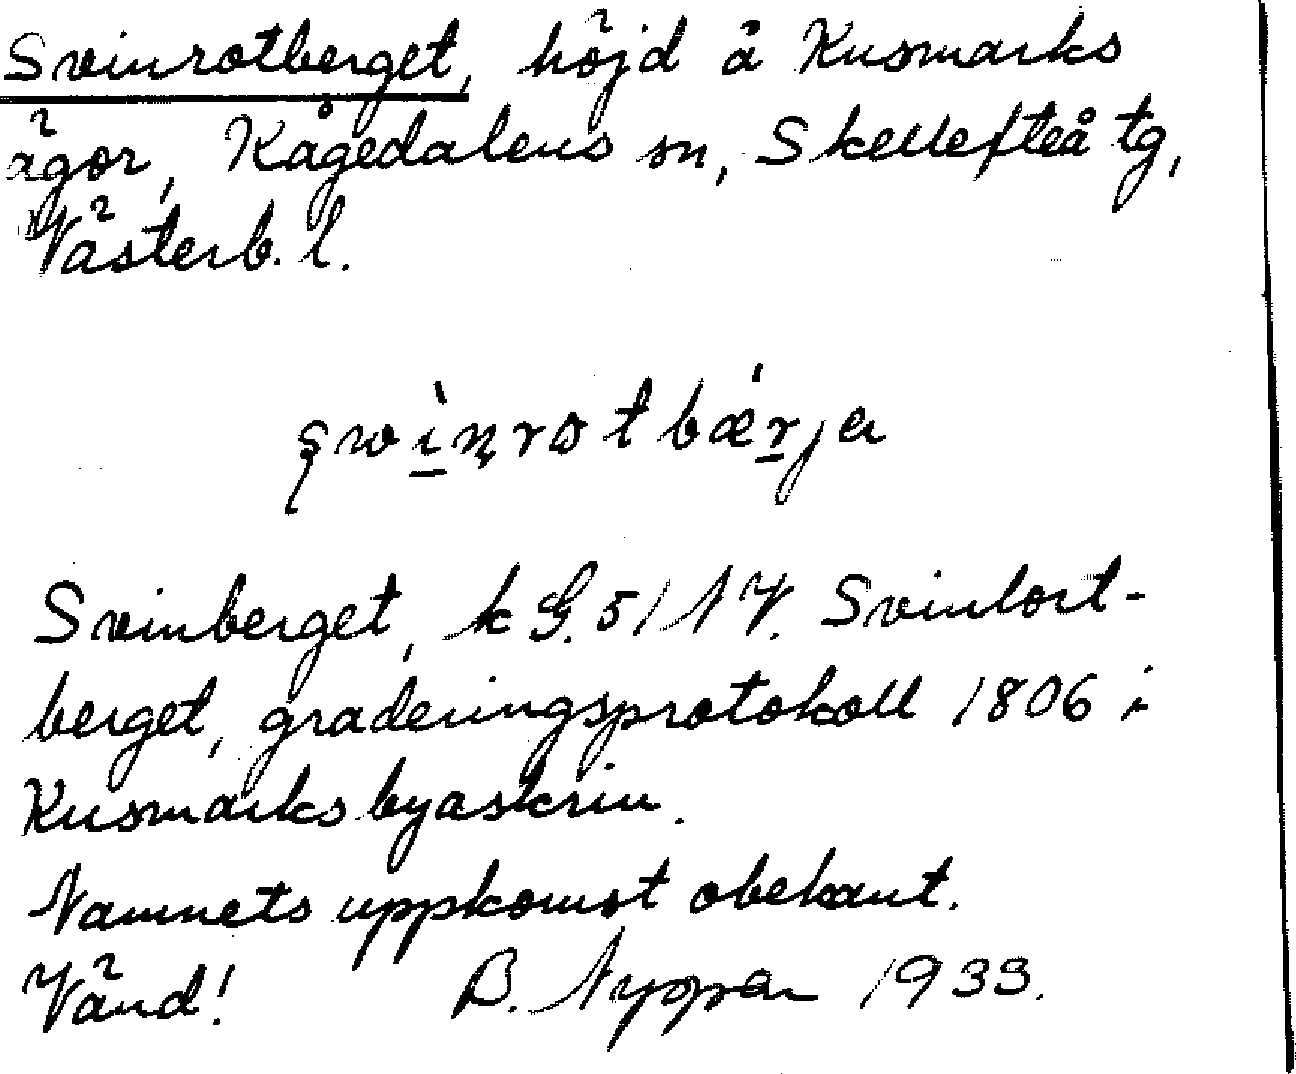 Svinrotberget, höjd å Kusmarks
ägor, Kågedalens sn, Skellefteå tg,
Västerb. l.
Svinberget, k G. 51 NV. Svinlort-
berget, graderingsprotokoll 1806 i
Kusmarks byaskrin.
Namnets uppkomst obekant.
Vänd! B. 1933.